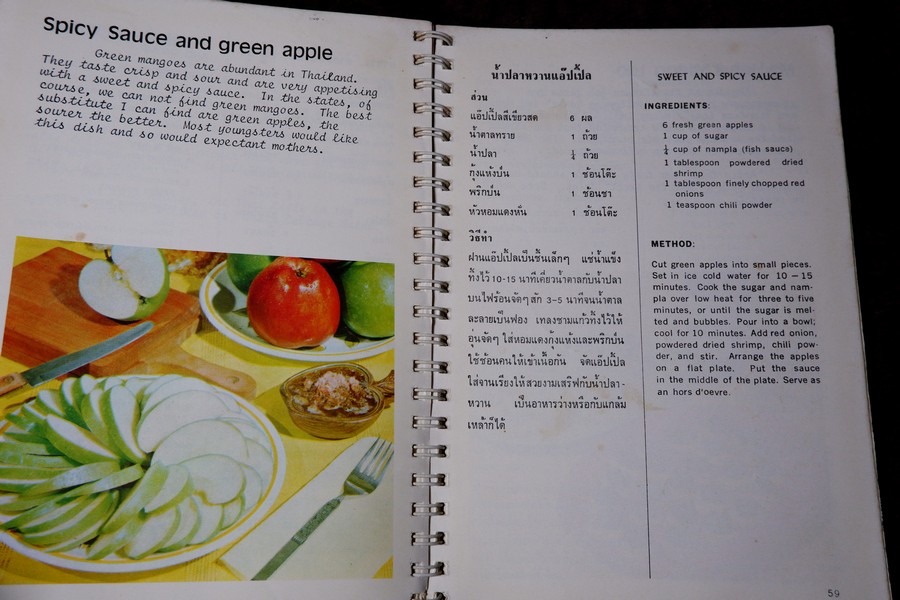 Spicy Sauce and green apple
Green mangoes are abundant in Thailand.
They taste crisp and sour and are very appetising
with a sweet and spicy sauce. In the states, of
course, we can not find green mangoes. The best
substitute I can find are green apples, the
sourer the better. Most youngsters would like
this dish and so would expectant mothers.
น้ำปลาหวานแอ๊ปเปิ้ล
ส่วน
แอ๊ปเปิ้ลสีเขียวสด 6 ผล
น้ำตาลทราย 1 ถ้วย
น้ำปลา ¼ ถ้วย
กุ้งแห้งป่น 1 ช้อนโต๊ะ
พริกป่น 1 ช้อนชา
หัวหอมแดงหั่น 1 ช้อนโต๊ะ
วิธีทำ
ฝานแอ๊ปเปิ้ลเป็นชิ้นเล็กๆ แช่น้ำแข็ง
ทิ้งไว้ 10-15 นาทีเคี่ยวน้ำตาลกับน้ำปลา
บนไฟร้อนจัดๆ สัก 3-5 นาทีจนน้ำตาล
ละลายเป็นฟอง เทลงชามแก้วทิ้งไว้ให้
อุ่นจัดๆ ใส่หอมแดงกุ้งแห้งและพริกป่น
ใช้ช้อนคนให้เข้าเนื้อกัน จัดแอ๊ปเปิ้ล
ใส่จานเรียงให้สวยงามเสริฟกับน้ำปลา-
หวาน เป็นอาหารว่างหรือกับแกล้ม
เหล้าก็ได้
SWEET AND SPICY SAUCE
INGREDIENTS:
6 fresh green apples
1 cup of sugar
¼ cup of nampla (fish sauca)
1 tablespoon powdered dried
shrimp
1 tablespoon finely chopped red
onions
1 teaspoon chili powder
METHOD:
Cut green apples into small pieces.
Set in ice cold water for 10 – 15
minutes. Cook the sugar and nam-
pla over low heat for three to five
minutes, or until the sugar is mel-
ted and bubbles. Pour into a bowl;
cool for 10 minutes. Add red onion,
powdered dried shrimp, chili pow-
der, and stir. Arrange the apples
on a flat plate. Put the sauce
in the middle of the plate. Serve as
an hors d'oevre.
59